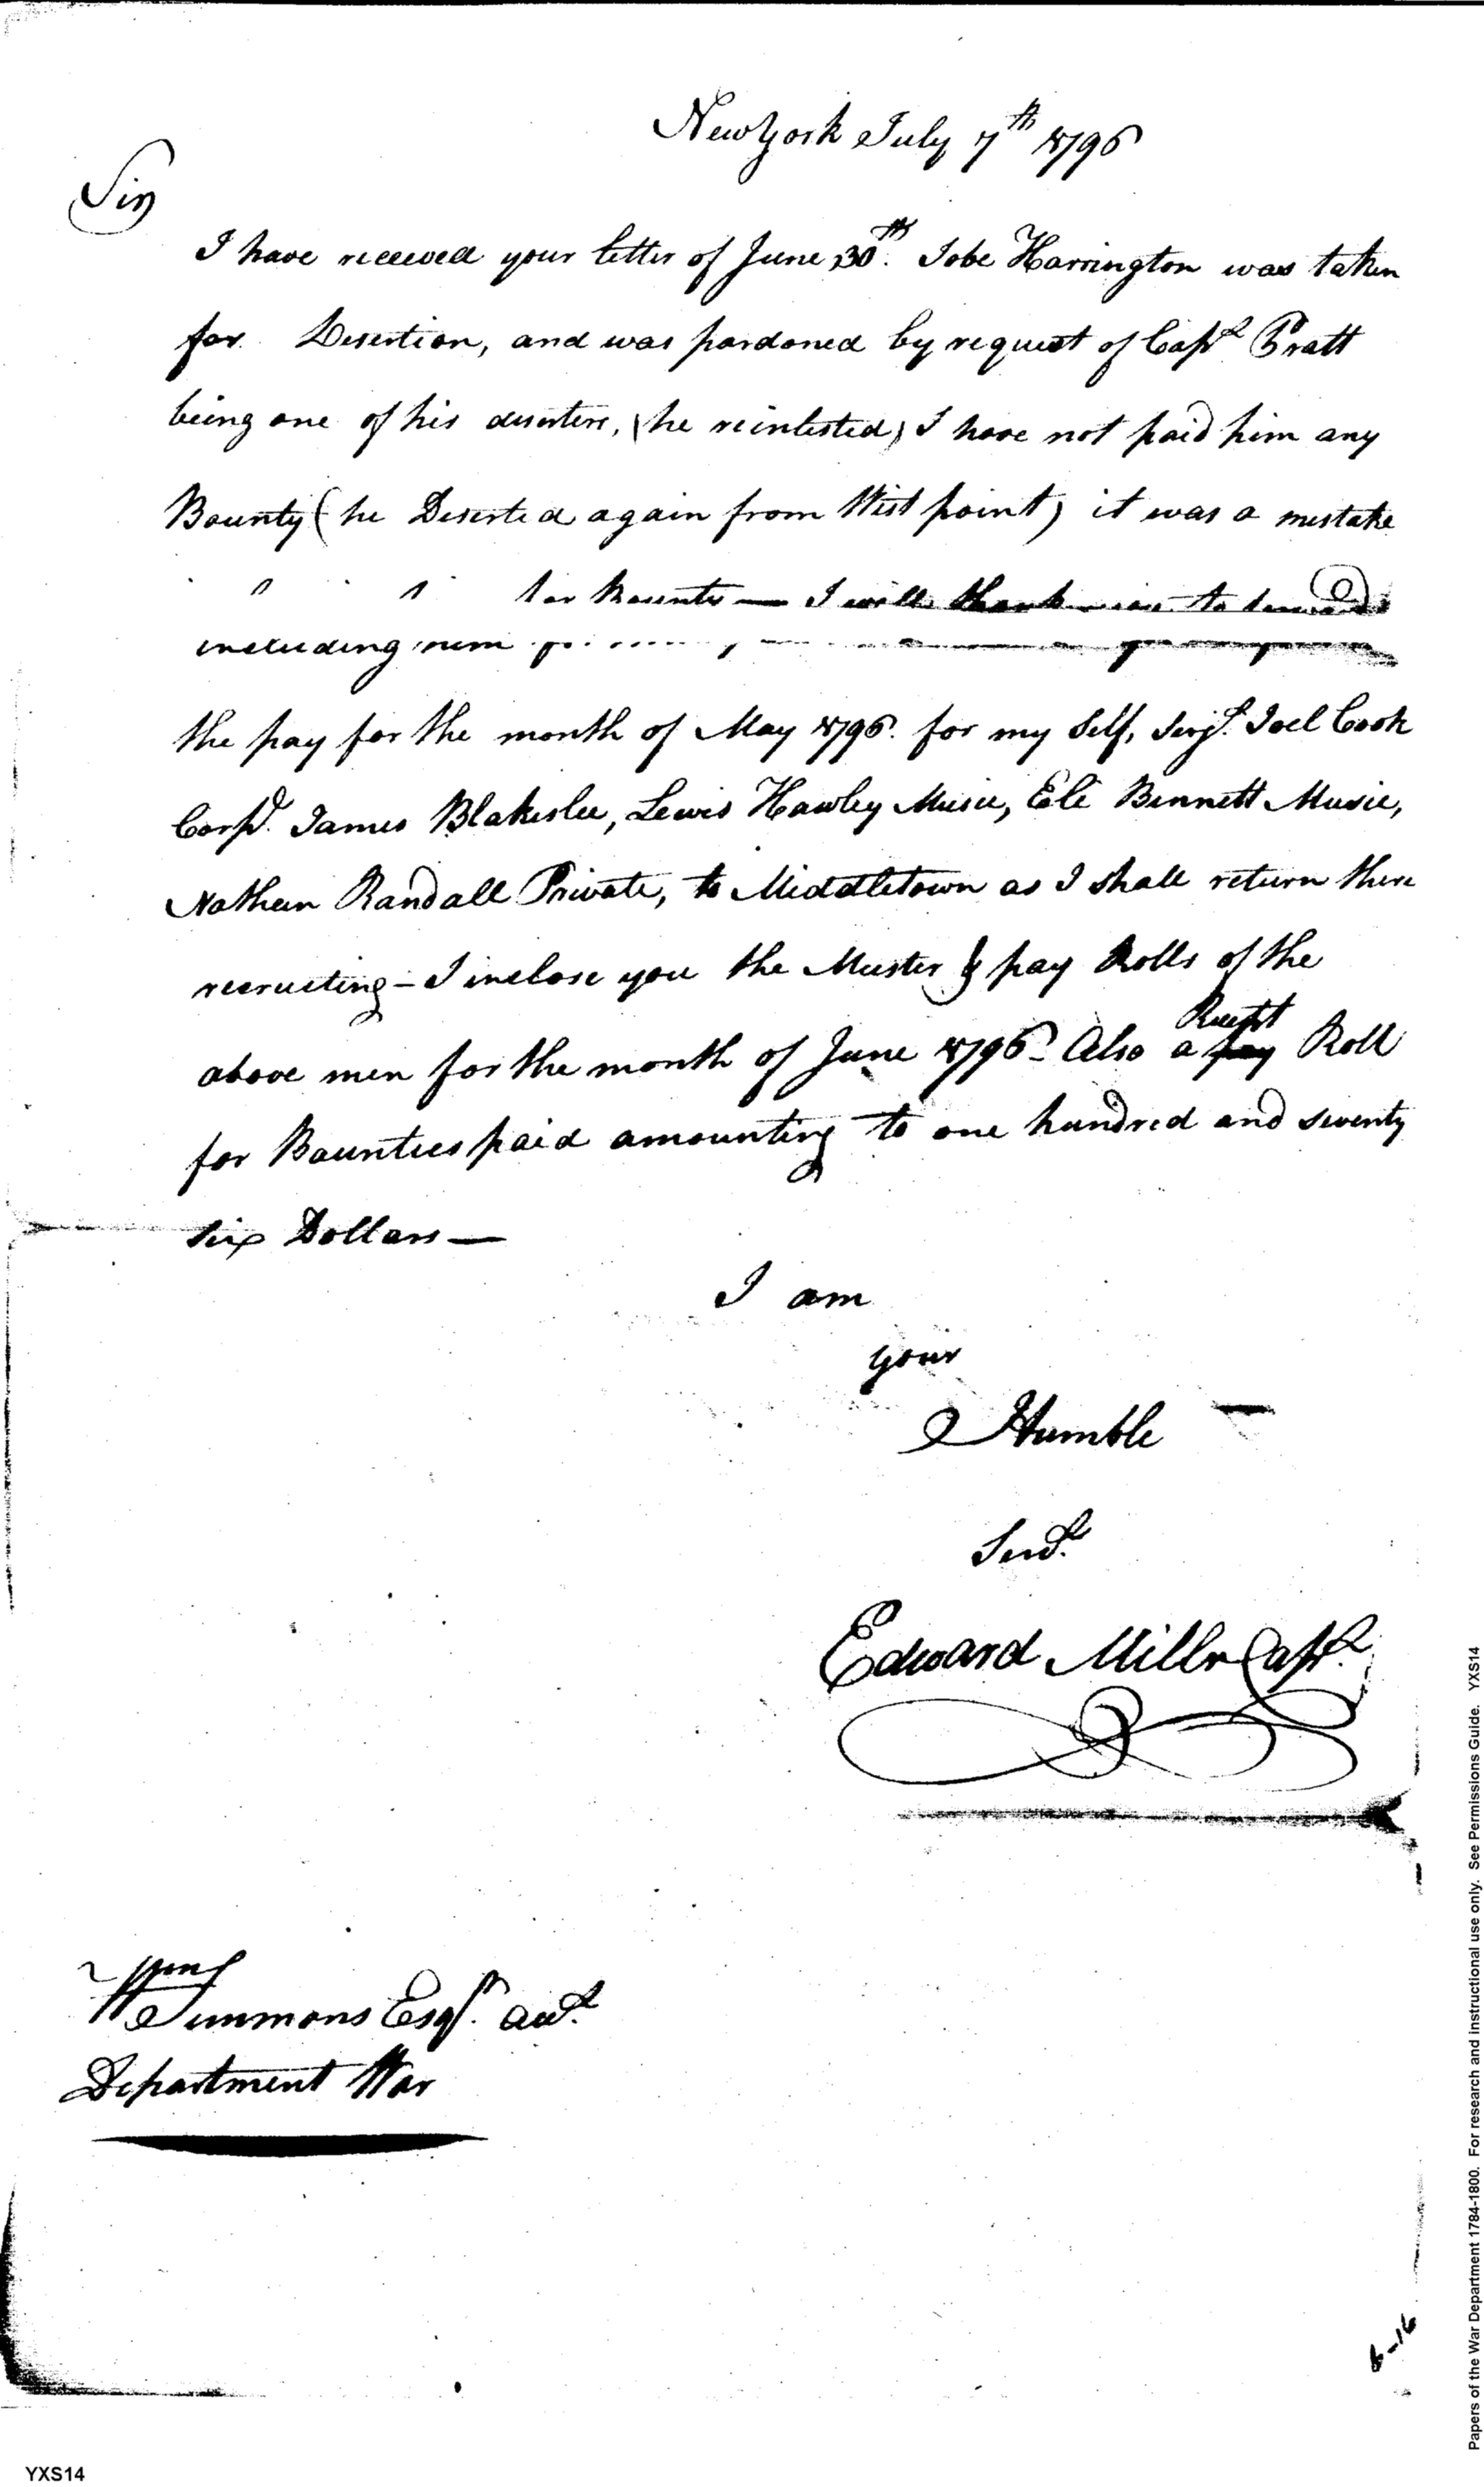 New York July 7th 1796
Sir
I have received your letter of June 30th. Jobe Harrington was taken
for Desertion, and was pardoned by request of Capt Pratt
being one of his deserters, (he reinlested) I have not paid him any
Bounty (he Deserted again from West point) it was a mistake
including him for Bounty — I will thank you to
the pay for the month of May 1796. for my Self, Serjt. Joel Cook
Corpl. James Blakeslee, Lewis Hawley Music, Eli Bennett Music,
Nathan Randall Private, to Middletown as I shall return there
recruiting – I inclose you the Muster & pay Rolls of the
above men for the month of June 1796 – Also a pay Receipt Roll
for Bounties paid amounting to one hundred and seventy
six Dollars —
I am
your
Humble
Servt.
Edward Miller Capt.
Wm
Simmons Esqr. acct.
Department War
6-16
YXS14
Papers of the War Department 1784-1800. For research and instructional use only. See Permissions Guide. YXS14